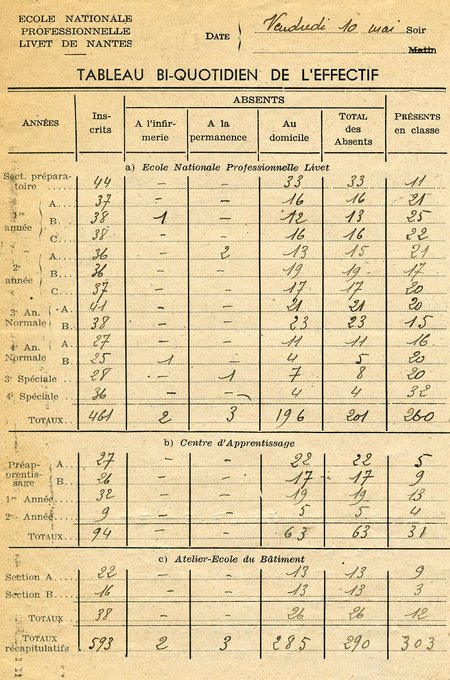 ECOLE NATIONALE
PROFESSIONNELLE
LIVET DE NANTES
DATE Vendredi 10 mai Soir
Matin
TABLEAU BI-QUOTIDIEN DE L'EFFECTIF
ANNÉES Inscrits ABSENTS PRÉSENTS en classe
A l'infirmerie A la permanence Au domicile TOTAL des Absents
a) Ecole Nationale Professionnelle Livet
Sect. préparatoire 44 – – 33 33 11
1re année A. 37 – – 16 16 21
B. 38 1 – 12 13 25
C. 38 – – 16 16 22
2e année A. 36 – 2 13 15 21
B. 36 – – 19 19 17
C. 37 – – 17 17 20
3e An. Normale A. 41 – – 21 21 20
B. 38 – – 23 23 15
4e An. Normale A. 27 – – 11 11 16
B. 25 1 – 4 5 20
3e Spéciale 28 – 1 7 8 20
4e Spéciale 36 – – 4 4 32
TOTAUX 461 2 3 196 201 260
b) Centre d'Apprentissage
Préapprentissage A. 27 – – 22 22 5
B. 26 – – 17 17 9
1re Année 32 – – 19 19 13
2e Année 9 – – 5 5 4
TOTAUX 94 – – 63 63 31
c) Atelier-Ecole du Bâtiment
Section A 22 – – 13 13 9
Section B 16 – – 13 13 3
TOTAUX 38 – – 26 26 12
TOTAUX récapitulatifs 593 2 3 285 290 303